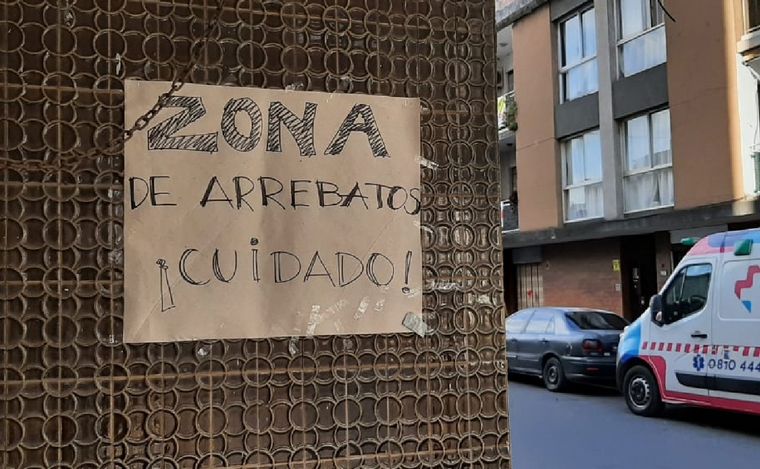 ZONA
DE ARREBATOS
¡CUIDADO!
0810 444